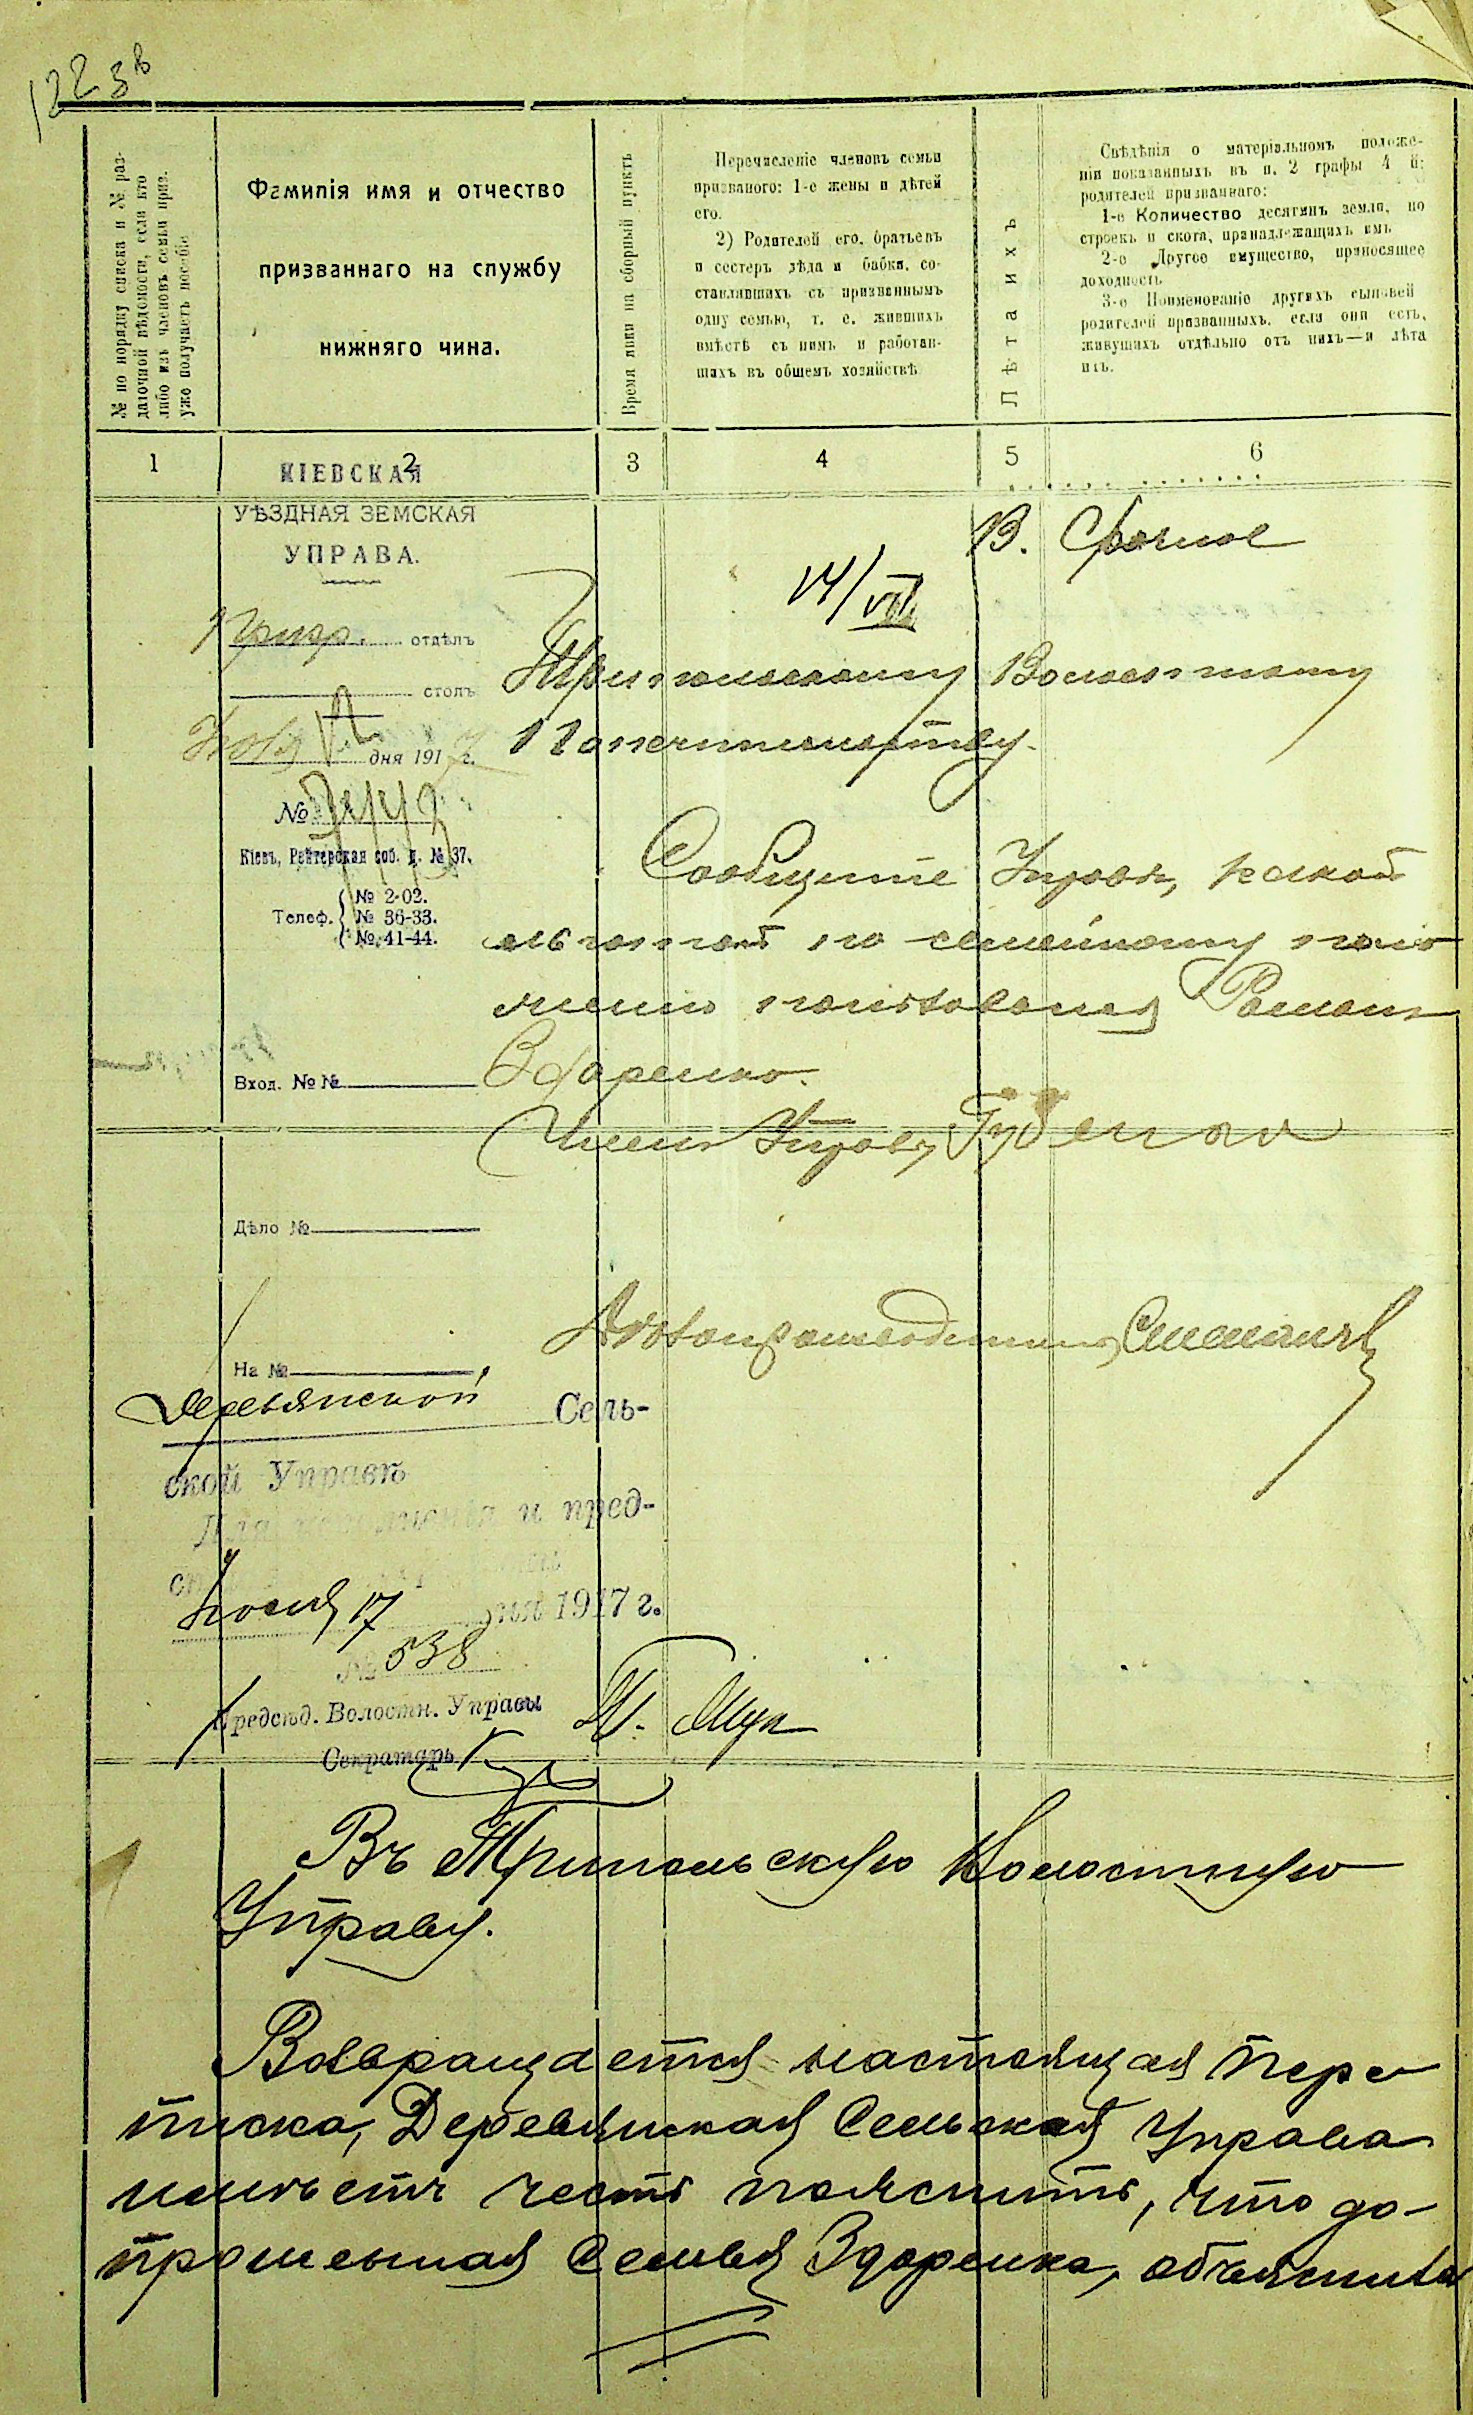 № по порядку списка и № раз-
даточной вѣдомости, если кто
либо изъ членовъ семьи приз.
уже получаетъ пособіе
Фамилія имя и отчество
призваннаго на службу
нижняго чина.
Время явки на сборный пунктъ
Перечисленіе членовъ семьи
призваного: 1-е жены и дѣтей
его.
2) Родителей его, братьевъ
и сестеръ дѣда и бабки, со-
ставлявшихъ съ призваннымъ
одну семью, т. е. жившихъ
вмѣстѣ съ нимъ и работав-
шихъ въ общемъ хозяйствѣ
Лѣта ихъ
Свѣдѣнія о матеріальномъ положе-
ніи показанныхъ въ п. 2 графы 4 й:
родителей призваннаго:
1-е Количество десятинъ земли, по
строекъ и скота, принадлежащихъ имъ
2-е Другое имущество, приносящее
доходность
3-е Поименованіе другихъ сыновей
родителей призванныхъ, если они есть,
живущихъ отдѣльно отъ нихъ—и лѣта
ихъ.
1 2 3 4 5 6
КІЕВСКАЯ
УѢЗДНАЯ ЗЕМСКАЯ
УПРАВА.
В. Срочное
14/VII
Призр. отдѣлъ
столъ
Іюля 12 дня 1917 г.
№
Кіевъ, Рейтерская соб. д. № 37.
Телеф. № 2-02.
№ 36-33.
№ 41-44.
Трипольскому Волостному
Попечительству.
Сообщите Управѣ, какой
льготой по семейному поло
женію пользовался Роман
Здоренко.
Вход. №№
Член Управы
Дѣло №
Дѣлопроизводитель
На №
Деревянской Сель-
ской Управѣ
Для исполненія и пред-
Іюля 17 дня 1917 г.
№ 538
Предсѣд. Волостн. Управы
Секретарь
Въ Трипольскую Волостную
Управу.
Возвращается настоящая пере
писка, Деревянская Сельская Управа
имѣетъ честь пояснить, что до-
прошенная Семья Здоренка, объяснила